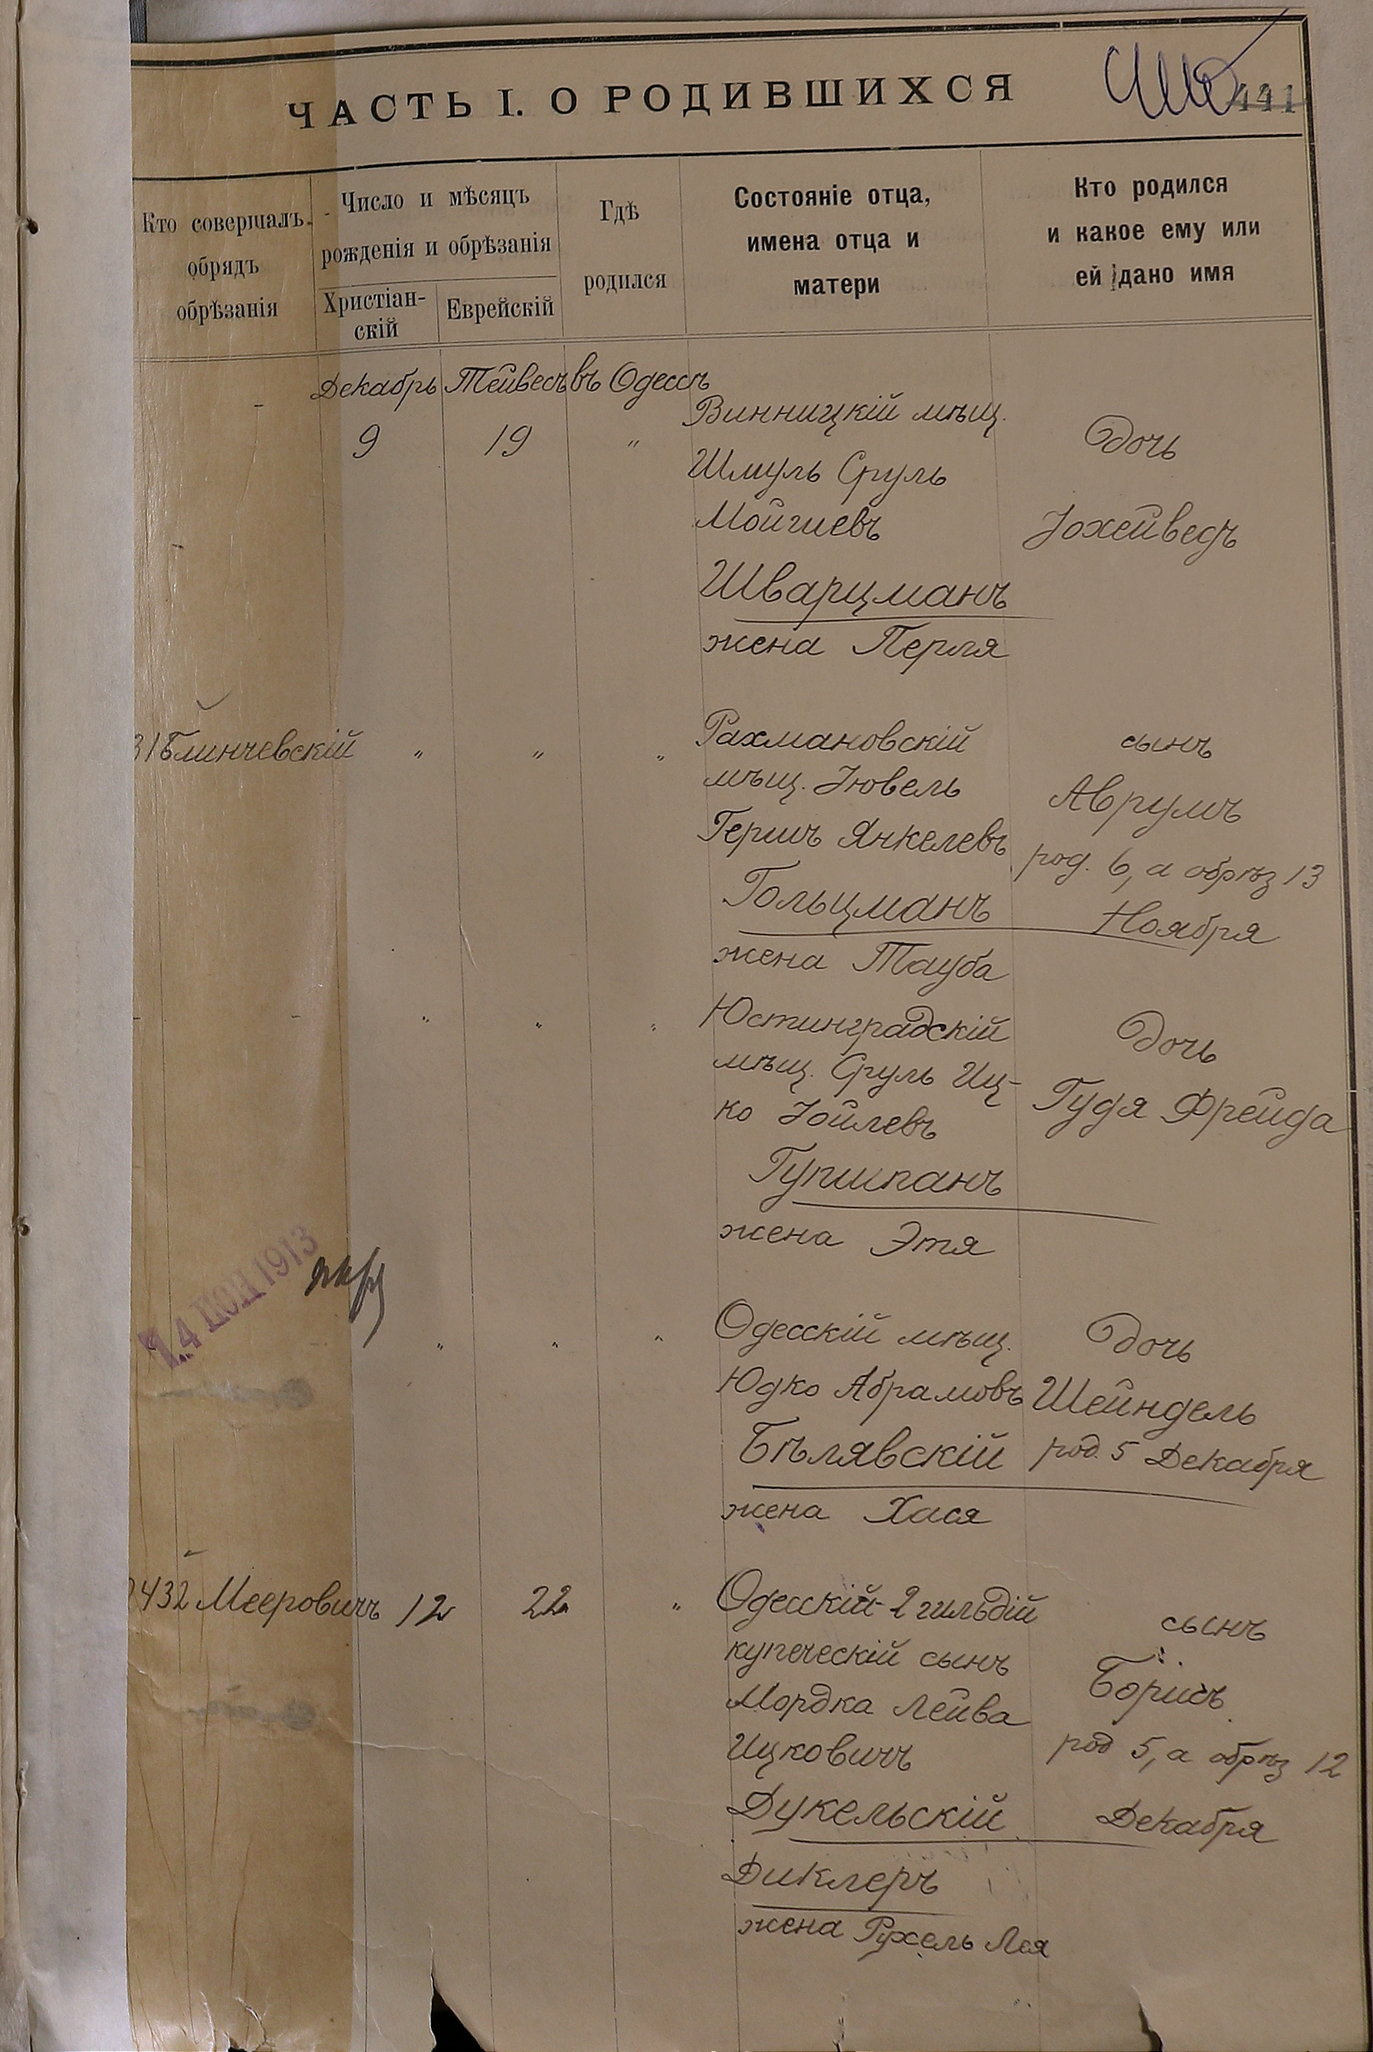 ЧАСТЬ I. О РОДИВШИХСЯ
441
Кто совершалъ
обрядъ
обрѣзанія
Число и мѣсяцъ
рожденія и обрѣзанія
Христіан-
скій
Еврейскій
Гдѣ
родился
Состояніе отца,
имена отца и
матери
Кто родился
и какое ему или
ей дано имя
Декабрь Тейвесъ въ Одессѣ
- 9 19 "
Винницкій мѣщ.
Шмуль Сруль
Мойшевъ
Шварцманъ
жена Перля
Дочь
Іохейведъ
Блинчевскій " " "
Рахмановскій
мѣщ. Іювель
Гершъ Янкелевъ
Гольцманъ
жена Тауба
сынъ
Аврумъ
род. 6, а обрѣз 13
Ноября
- - " " "
Юстинградскій
мѣщ. Сруль Иц-
ко Іойлевъ
жена Этя
Дочь
Гудя Фрейда
14 ПОП 1913
" " "
Одесскій мѣщ.
Юдко Абрамовъ
Бѣлявскій
жена Хася
Дочь
Шейндель
род. 5 Декабря
432 Мееровичъ 12 22 "
Одесскій 2 гильдій
купеческій сынъ
Мордка Лейва
Ицковичъ
Дукельскій
Диклеръ
жена Рухель Лея
сынъ
Борисъ
род 5, а обрѣз 12
Декабря